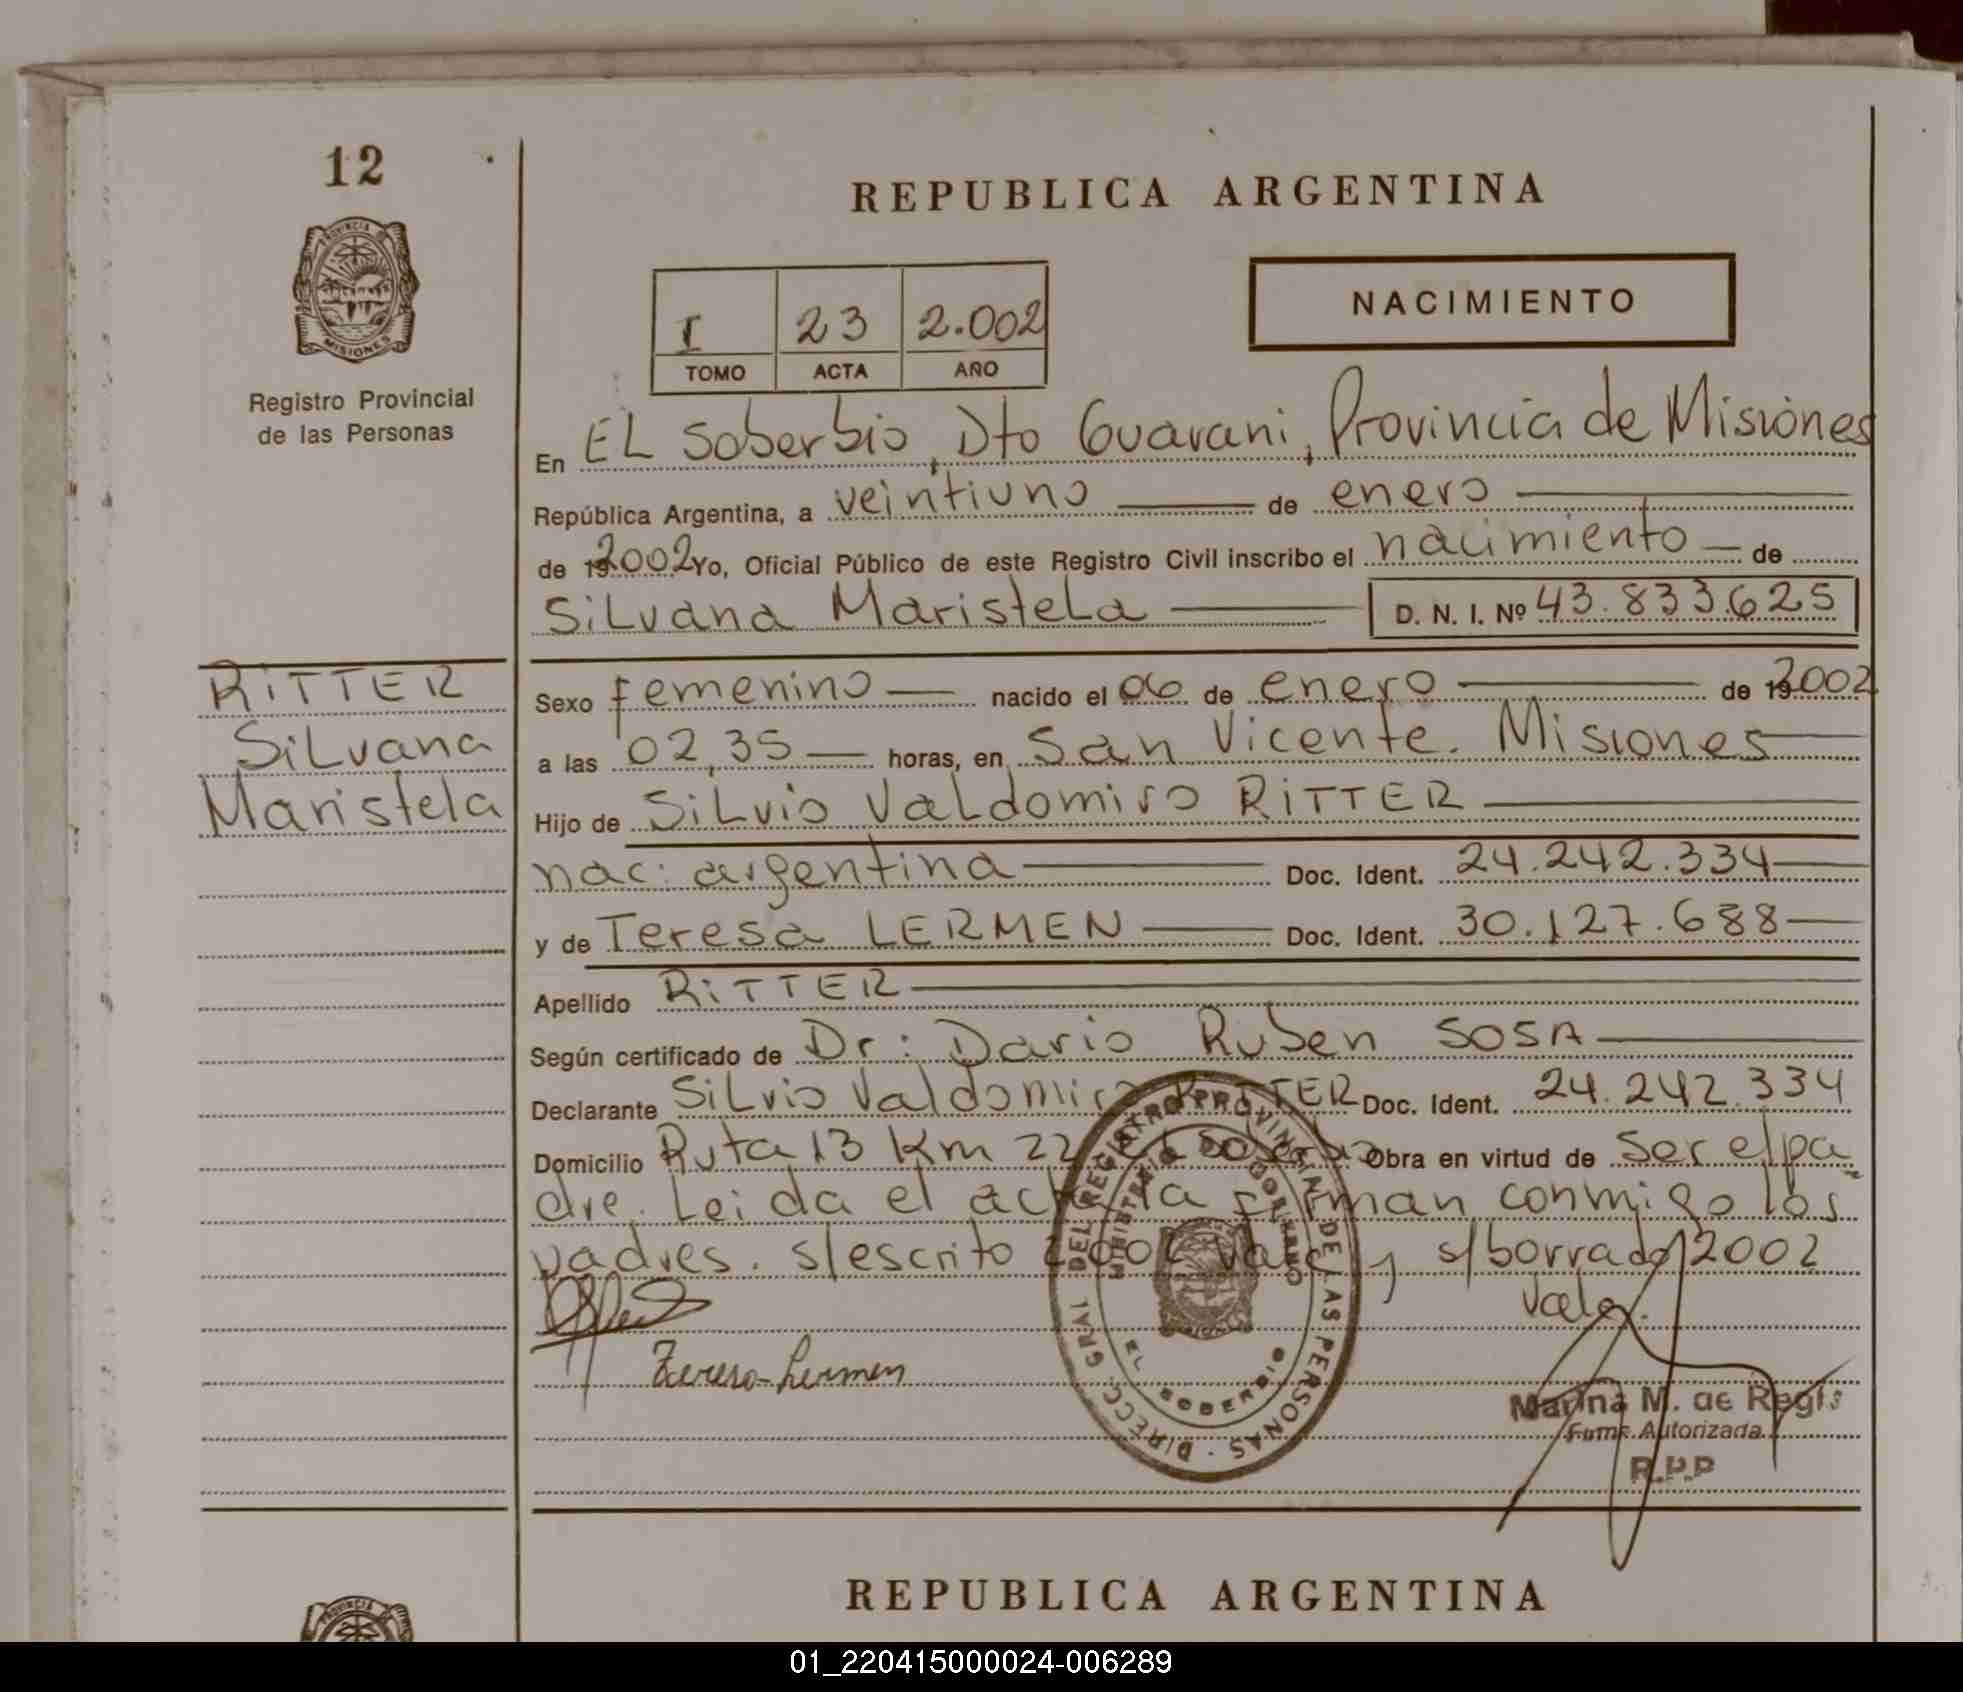 12
REPUBLICA ARGENTINA
PROVINCIA DE
MISIONES
Registro Provincial
de las Personas
I 23 2.002
TOMO ACTA AÑO
NACIMIENTO
En EL Soberbio, Dto Guarani, Provincia de Misiones
República Argentina, a veintiuno de enero
de 192002 Yo, Oficial Público de este Registro Civil inscribo el nacimiento de
Silvana Maristela D. N. I. Nº 43.833.625
RITTER
Silvana
Maristela
Sexo femenino nacido el 06 de enero de 192002
a las 02,35 horas, en San Vicente. Misiones
Hijo de Silvio Valdomiro RITTER
nac: argentina Doc. Ident. 24.242.334
y de Teresa LERMEN Doc. Ident. 30.127.688
Apellido RITTER
Según certificado de Dr: Dario Ruben SOSA
Declarante Silvio Valdomiro RITTER Doc. Ident. 24.242.334
Domicilio Ruta 13 Km 22 el Soberbio Obra en virtud de ser el pa
dre. Leida el acta firman conmigo los
padres. s/escrito 2002 vale y s/borrado 2002
vale.
Teresa Lermen
DIRECC. GRAL DEL REGISTRO PROVINCIAL DE LAS PERSONAS
MINISTERIO DE GOBIERNO
EL SOBERBIO
Marina M. de Regis
Firma Autorizada
R.P.P
REPUBLICA ARGENTINA
PROVINCIA DE
01_220415000024-006289